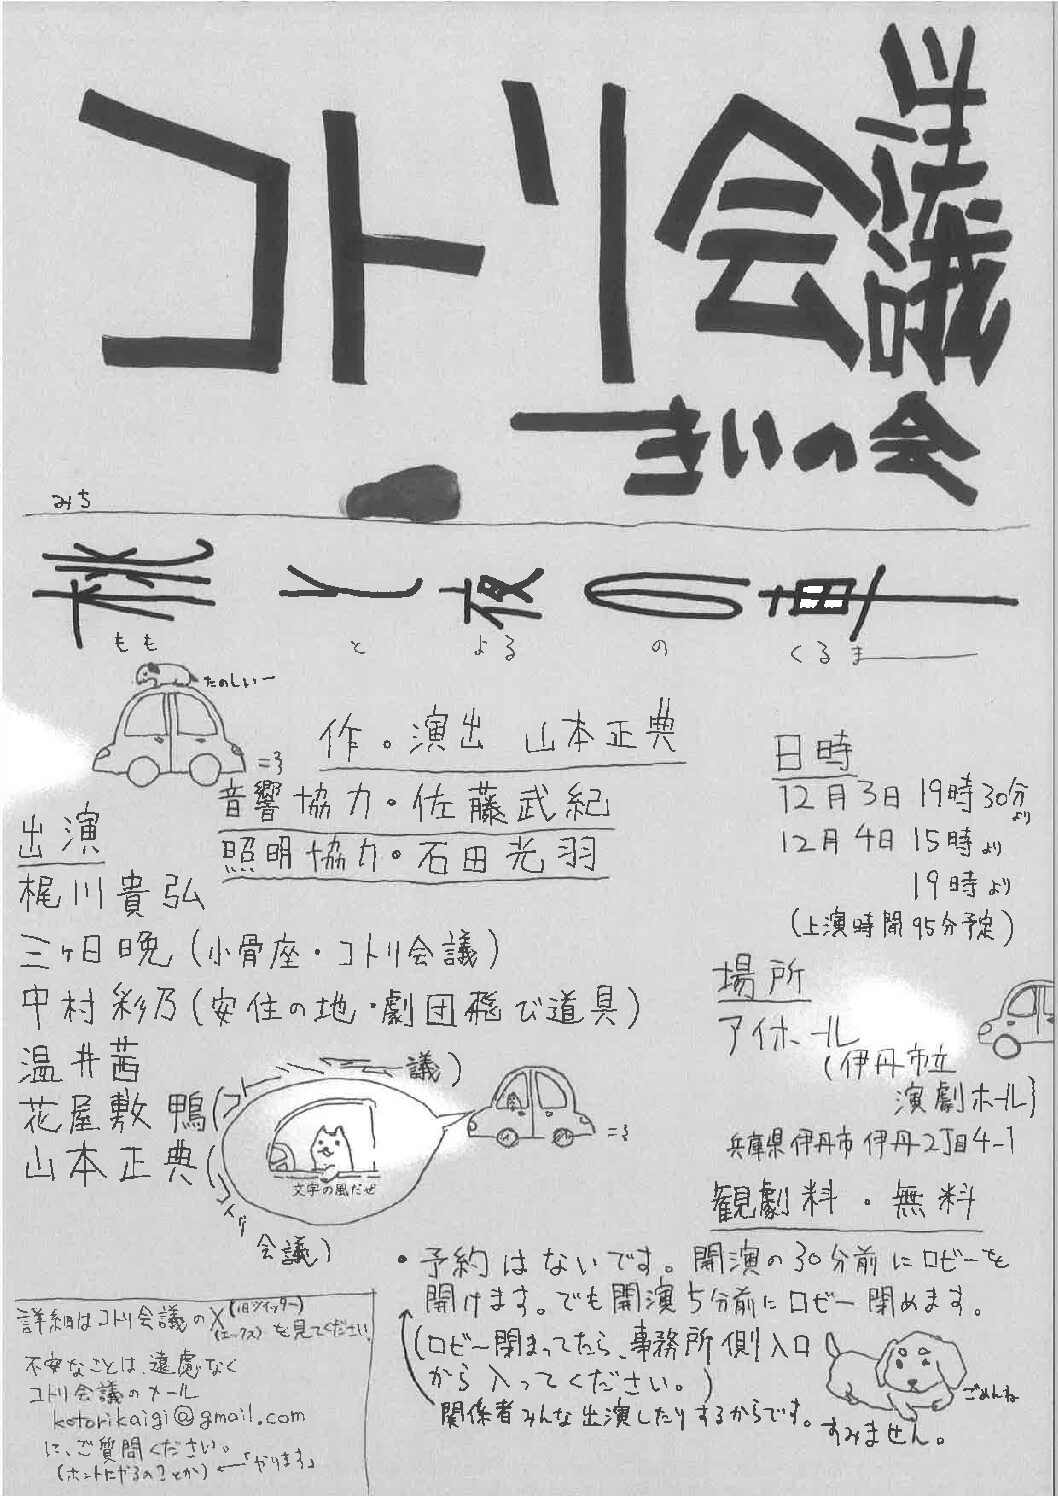 コトリ会議
きいの会
みち
桃と夜の車
ももとよるのくるま
たのしいー
作。演出 山本正典
音響協力・佐藤武紀
照明協力・石田光羽
出演
梶川貴弘
三ヶ日晩(小骨座・コトリ会議)
中村彩乃(安住の地・劇団飛び道具)
温井茜
花屋敷鴨(コトリ会議)
山本正典(コトリ会議)
文字の風だぜ
日時
12月3日 19時30分より
12月4日 15時より
19時より
(上演時間95分予定)
場所
アイホール
(伊丹市立
演劇ホール)
兵庫県伊丹市伊丹2丁目4-1
観劇料・無料
・予約はないです。開演の30分前にロビーを
開けます。でも開演5分前にロビー閉めます。
(ロビー閉まってたら、事務所側入口
から入ってください。)
関係者みんな出演したりするからです。
すみません。
ごめんね
詳細はコトリ会議のX(旧ツイッター)(エックス)を見てください。
不安なことは、遠慮なく
コトリ会議のメール
kotorikaigi@gmail.com
に、ご質問ください。
(ホントにやるの?とか)←「やります」